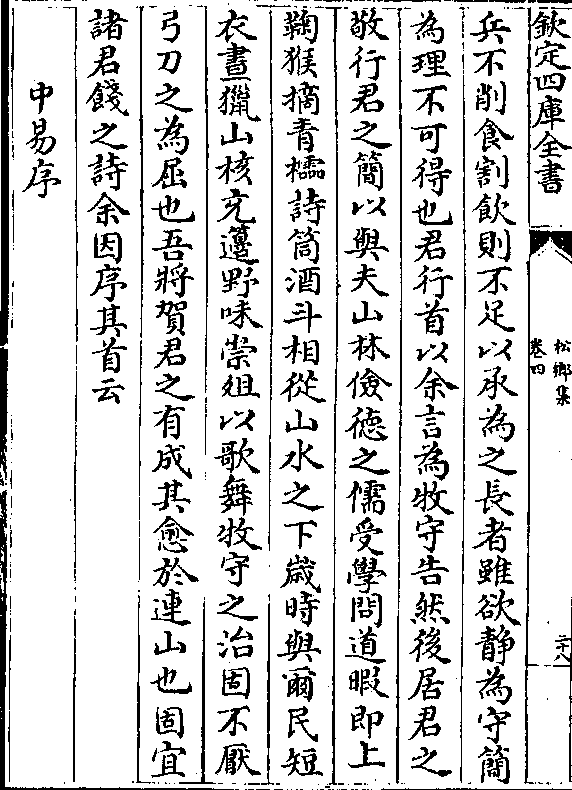 欽定四庫全書
松鄉集
卷四
二十八
兵不削食割飲則不足以承為之長者雖欲静為守簡
為理不可得也君行首以余言為牧守告然後居君之
敬行君之簡以與夫山林儉德之儒受學問道暇即上
鞠猴摘青櫺詩筒酒斗相從山水之下歲時與爾民短
衣晝獵山核充籩野味崇俎以歌舞牧守之治固不厭
弓刀之為屈也吾將賀君之有成其愈於連山也固宜
諸君餞之詩余因序其首云
中易序